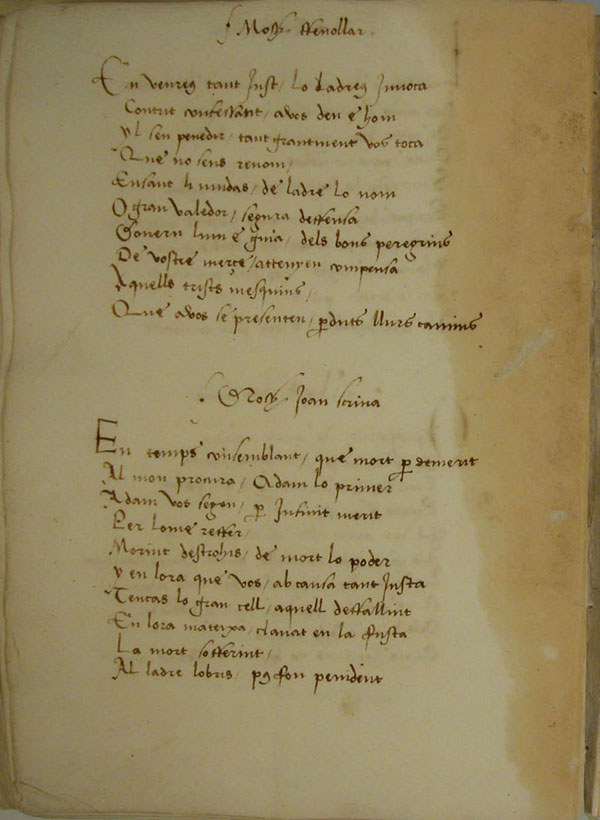 Mossen ffenollar
En venreus tant Just, lo ladreus Invoca
Contrit confessant, avos deu e hom
Yl seu penedir, tant grantment vos toca
Que no sens renom,
Ensant li mudas, de ladre lo nom
O gran valedor, segura deffensa
Govern lum e guia, dels bons peregrins
De vostre merce, attenyen conpensa
Aquells trists mesquins,
Que avos se presenten, perduts llurs camins
Mossen Joan scriva
En temps consemblant, que mort per demerit
Al mon procura, Adam lo primer
Adam vos segon, per Infinit merit
Per lome reffer,
Morint destrohis, de mort lo poder
y en lora que vos, ab causa tant Justa
Tencas lo gran cell, aquell deffallint
En lora mateixa, clavat en la fusta
La mort sofferint,
Al ladre lobris, pus fou penident